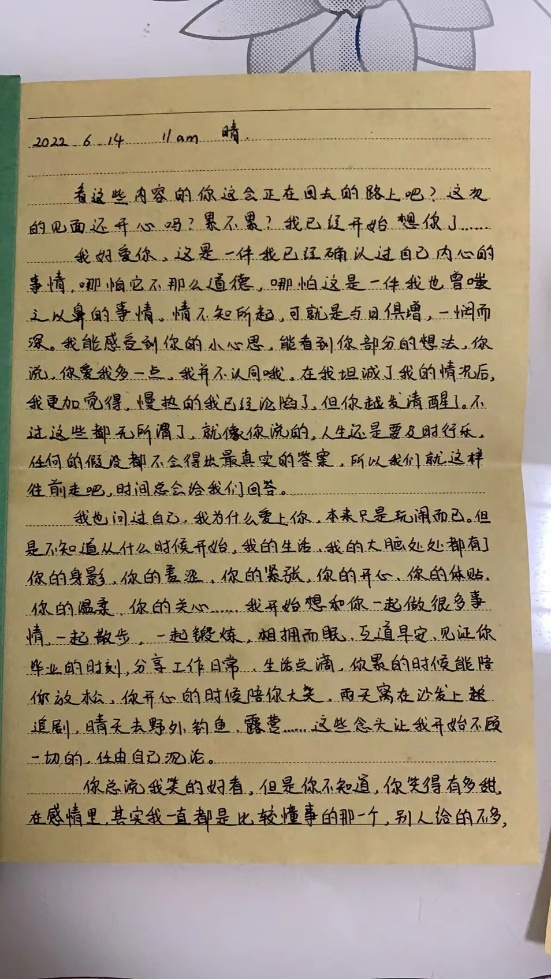 2022 6 14 11am 晴.
看这些内容的你这会正在回去的路上吧？这次
的见面还开心吗？累不累？我已经开始想你了……
我好爱你，这是一件我已经确认过自己内心的
事情，哪怕它不那么道德，哪怕这是一件我也曾嗤
之以鼻的事情。情不知所起，可就是与日俱增，一悯而
深。我能感受到你的小心思，能看到你部分的想法，你
说，你爱我多一点，我并不认同哦。在我坦诚了我的情况后，
我更加觉得，慢热的我已经沦陷了，但你越发清醒了。不
过这些都无所谓了，就像你说的，人生还是要及时行乐。
任何的假设都不会得出最真实的答案，所以我们就这样
往前走吧，时间总会给我们回答。
我也问过自己，我为什么爱上你，本来只是玩闹而已。但
是不知道从什么时候开始，我的生活、我的大脑处处都有了
你的身影，你的羞涩、你的紧张、你的开心、你的体贴、
你的温柔、你的关心……我开始想和你一起做很多事
情，一起散步，一起锻炼，相拥而眠，互道早安，见证你
毕业的时刻，分享工作日常、生活点滴，你累的时候能陪
你放松，你开心的时候陪你大笑，雨天窝在沙发上
追剧，晴天去野外钓鱼、露营……这些念头让我开始不顾
一切的，任由自己沉沦。
你总说我笑的好看，但是你不知道，你笑得有多甜。
在感情里，其实我一直都是比较懂事的那一个，别人给的不多，